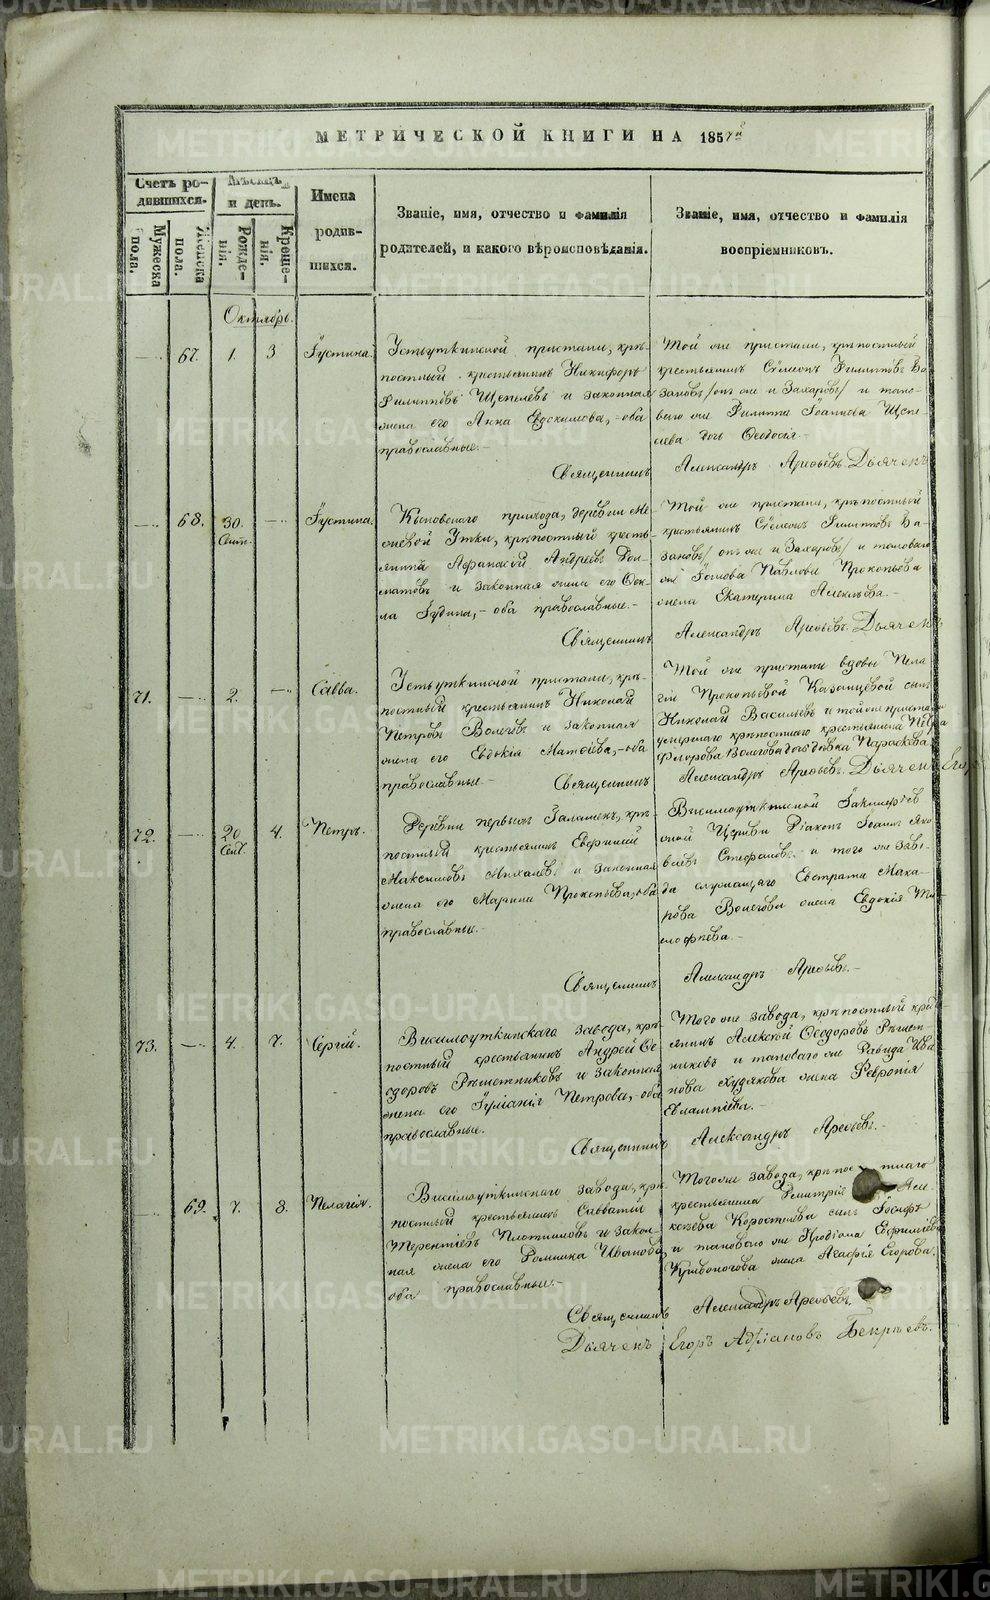 МЕТРИЧЕСКОЙ КНИГИ НА 1857й
Счетъ ро-
дившихся.
Мѣсяцъ
и день.
Имена
родив-
шихся.
Званіе, имя, отчество и фамилія
родителей, и какого вѣроисповѣданія.
Званіе, имя, отчество и фамилія
воспріемниковъ.
Мужеска
пола.
Женска
пола.
Рожде-
нія.
Креще-
нія.
Октябрь.
67. 1. 3 Іустина.
Устьуткинской пристани, крѣ-
постный крестьянинъ Никифоръ
Филипповъ Щепелевъ и законная
жена его Анна Евдокимова, - оба
православные. -
Той же пристани, крѣпостный
крестьянинъ Сѵмеонъ Филипповъ Ба-
зановъ /онъ же и Захаровъ/ и тако-
ваго же Филиппа Іоаннова Щепе-
лева дочь Ѳеодосія. -
Священникъ Александръ Арефьевъ. Дьячекъ
68. 30. Сент. - Іустина.
Кыновскаго прихода, деревни Ме-
жевой Утки, крѣпостный кресть-
янинъ Аѳанасій Андреевъ Дол-
матовъ и законная жена его Ѳек-
ла Іудина, - оба православные. -
Той же пристани, крѣпостный
крестьянинъ Сѵмеонъ Филипповъ Ба-
зановъ /онъ же и Захаровъ/ и таковаго
же Павлова Прокопьева
жена Екатерина Алексѣева. -
Священникъ Александръ Арефьевъ. Дьячекъ
71. 2. - Савва.
Устьуткинской пристани, крѣ-
постный крестьянинъ Николай
Петровъ Волеговъ и законная
жена его Евдокія Матѳіева, - оба
православные. -
Той же пристани вдовы Пела-
геи Прокопьевой Казанцевой сынъ
Николай Васильевъ и той же пристани
умершаго крѣпостнаго крестьянина Петра
Флорова Волегова дочь дѣвка Параскева
Священникъ Александръ Арефьевъ. Дьячекъ Егоръ
72. 20 Сент. 4. Петръ.
Деревни первыхъ Галашекъ, крѣ-
постный крестьянинъ Евфимій
Максимовъ Михалевъ и законная
жена его Марина Прокопьева, оба
православные. -
Висимоуткинской Іакинфіев-
ской Церкви Діаконъ Іоаннъ Яко-
влевъ Стефановъ и того же заво-
да служащаго Евстрата Мака-
рова Волегова жена Евдокія Ти-
моѳеева. -
Священникъ Александръ Арефьевъ. -
73. 4. 7. Сергій.
Висимоуткинскаго завода, крѣ-
постный крестьянинъ Андрей Ѳе-
одоровъ Рѣшетниковъ и законная
жена его Іуліанія Петрова, оба
православные.
Того же завода, крѣпостный крест-
янинъ Алексѣй Ѳеодоровъ Рѣшет-
никовъ и таковаго же Давида Ива-
нова Худякова жена Февронія
Евлампіева. -
Священникъ Александръ Арефьевъ. -
69. 7. 8. Пелагія.
Висимоуткинскаго завода, крѣ-
постный крестьянинъ Савватій
Терентіевъ Плотниковъ и закон-
ная жена его Домника Иванова,
оба православные. -
Того же завода, крѣпостнаго
крестьянина Димитрія Але-
ксѣева Коростелева сынъ Іосифъ
и таковаго же Иродіона Евфиміева
Кривоногова жена Агафія Егорова.
Священникъ Александръ Арефьевъ.
Дьячекъ Егоръ Адріановъ Бекрѣевъ.